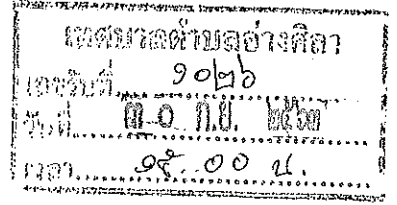 เทศบาลตำบลอ่างศิลา
เลขรับที่ ๑๐๒๖
วันที่ ๓ ๐ ก.ย. ๒๕๖๓
เวลา ๑๕.๐๐ น.